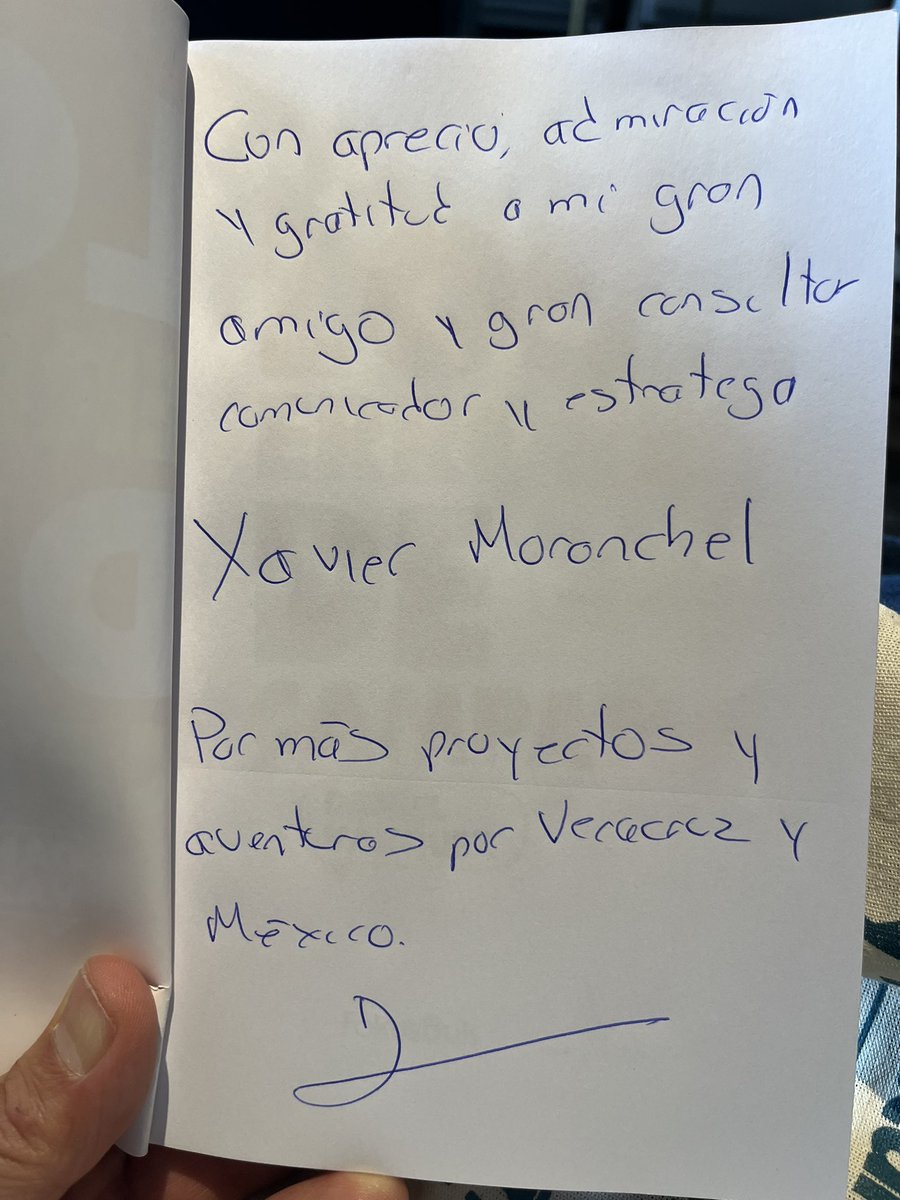 Con aprecio, admiración
y gratitud a mi gran
amigo y gran consultor
comunicador y estratega
Xavier Moranchel
Por más proyectos y
aventuras por Veracruz y
México.